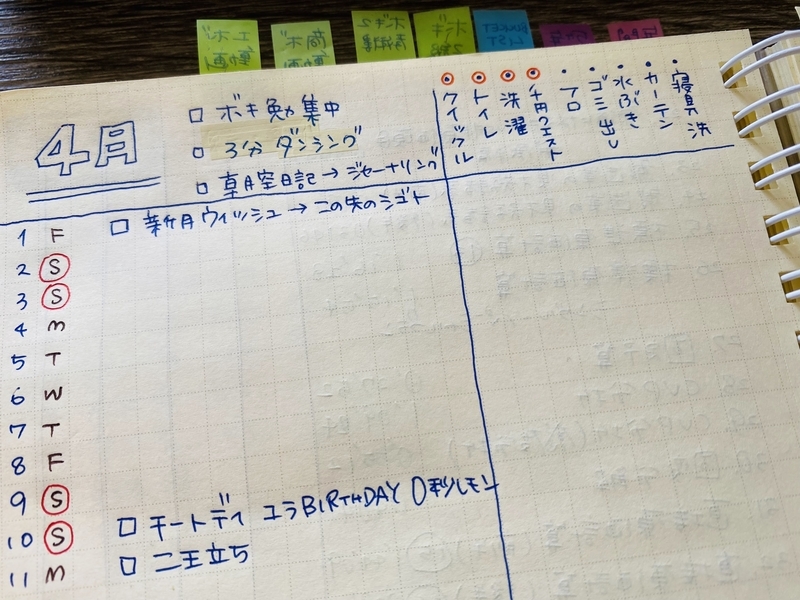 工ボキ
動画
商ボキ
動画
ボキ2
ボキ
2級
BUCKET
LIST
4月
□ ボキ勉集中
□ 3分ダンシング
□ 真月空日記→ジャーナリング
クイックル
トイレ
洗濯
千円クエスト
フロ
ゴミ出し
水ぶき
カーテン
寝具洗
1 F □ 新月ウィッシュ→この先のシゴト
2 S
3 S
4 M
5 T
6 W
7 T
8 F
9 S □ チートデイ ユラBIRTHDAY
10 S □ 二王立ち
11 M